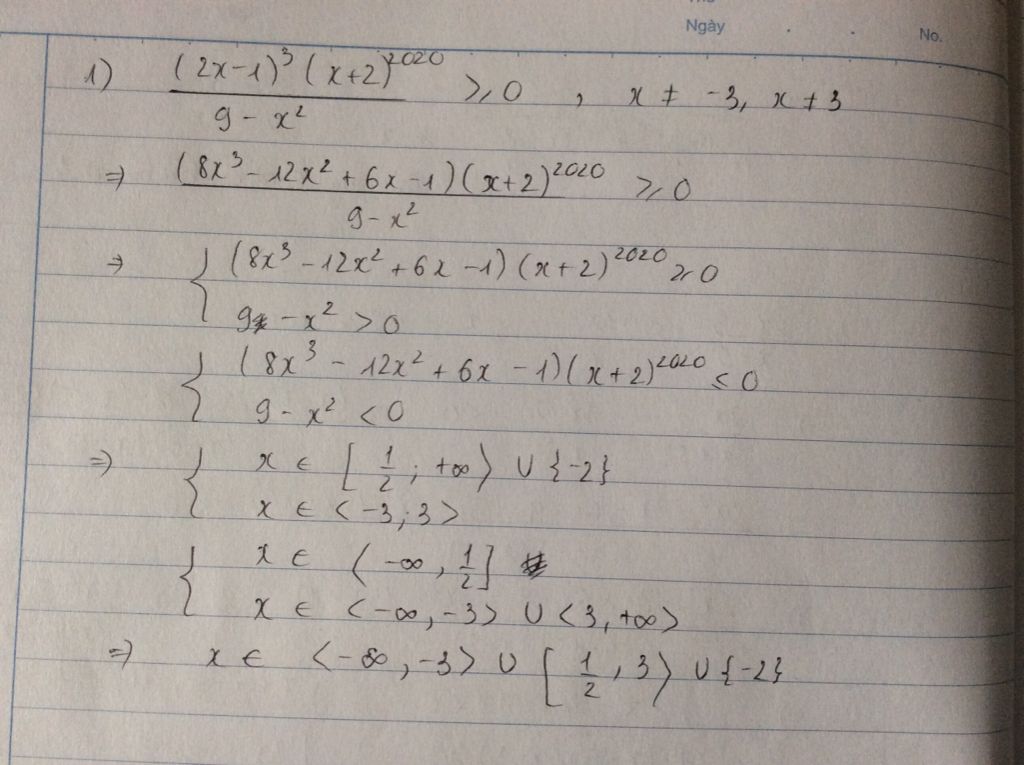 Thứ
Ngày . . No.
1) (2x-1)³ (x+2)²⁰²⁰ / 9 - x² ≥ 0 , x ≠ -3, x ≠ 3
⇒ (8x³ - 12x² + 6x - 1)(x+2)²⁰²⁰ / 9 - x² ≥ 0
⇒ { (8x³ - 12x² + 6x - 1)(x+2)²⁰²⁰ ≥ 0
9 - x² > 0
{ (8x³ - 12x² + 6x - 1)(x+2)²⁰²⁰ ≤ 0
9 - x² < 0
⇒ { x ∈ [1/2; +∞) ∪ {-2}
x ∈ <-3; 3>
{ x ∈ (-∞, 1/2]
x ∈ <-∞, -3> ∪ <3, +∞>
⇒ x ∈ <-∞, -3> ∪ [1/2, 3) ∪ {-2}